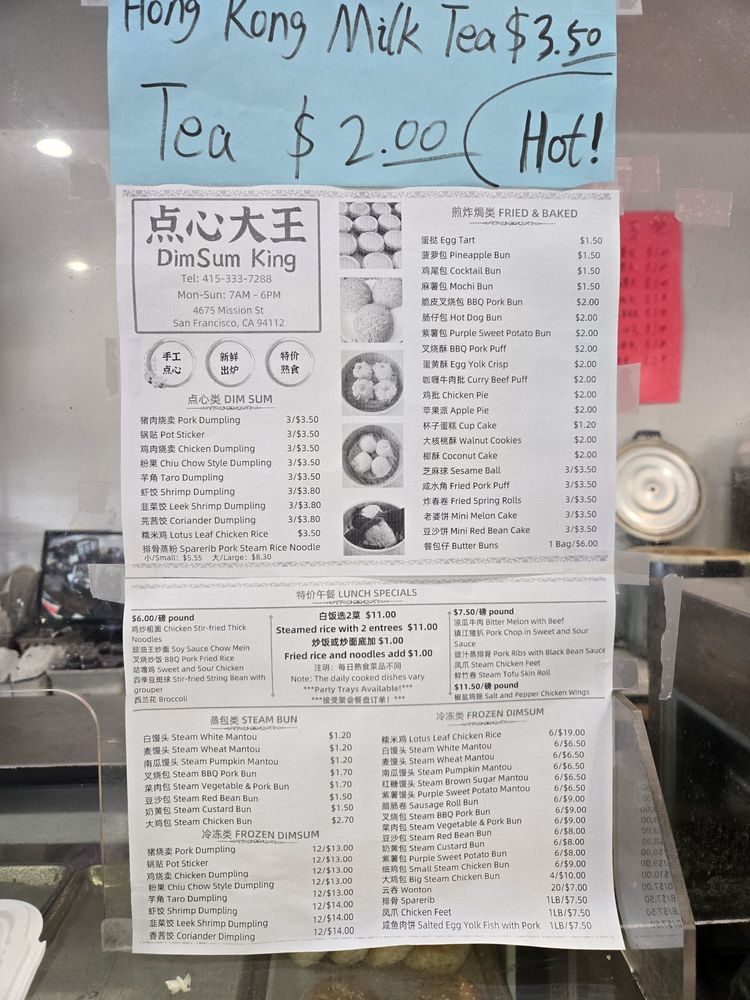 Hong Kong Milk Tea $3.50
Tea $2.00 Hot!
点心大王
DimSum King
Tel: 415-333-7288
Mon-Sun: 7AM - 6PM
4675 Mission St
San Francisco, CA 94112
手工
点心
新鲜
出炉
特价
熟食
点心类 DIM SUM
猪肉烧卖 Pork Dumpling 3/$3.50
锅贴 Pot Sticker 3/$3.50
鸡肉烧卖 Chicken Dumpling 3/$3.50
粉果 Chiu Chow Style Dumpling 3/$3.50
芋角 Taro Dumpling 3/$3.50
虾饺 Shrimp Dumpling 3/$3.80
韭菜饺 Leek Shrimp Dumpling 3/$3.80
芫茜饺 Coriander Dumpling 3/$3.80
糯米鸡 Lotus Leaf Chicken Rice $3.50
排骨蒸粉 Sparerib Pork Steam Rice Noodle
小/Small: $5.55 大/Large: $8.30
煎炸焗类 FRIED & BAKED
蛋挞 Egg Tart $1.50
菠萝包 Pineapple Bun $1.50
鸡尾包 Cocktail Bun $1.50
麻薯包 Mochi Bun $1.50
脆皮叉烧包 BBQ Pork Bun $2.00
肠仔包 Hot Dog Bun $2.00
紫薯包 Purple Sweet Potato Bun $2.00
叉烧酥 BBQ Pork Puff $2.00
蛋黄酥 Egg Yolk Crisp $2.00
咖喱牛肉批 Curry Beef Puff $2.00
鸡批 Chicken Pie $2.00
苹果派 Apple Pie $2.00
杯子蛋糕 Cup Cake $1.20
大核桃酥 Walnut Cookies $2.00
椰酥 Coconut Cake $2.00
芝麻球 Sesame Ball 3/$3.50
咸水角 Fried Pork Puff 3/$3.50
炸春卷 Fried Spring Rolls 3/$3.50
老婆饼 Mini Melon Cake 3/$3.50
豆沙饼 Mini Red Bean Cake 3/$3.50
餐包仔 Butter Buns 1 Bag/$6.00
特价午餐 LUNCH SPECIALS
$6.00/磅 pound
鸡炒粗面 Chicken Stir-fried Thick
Noodles
豉油王炒面 Soy Sauce Chow Mein
叉烧炒饭 BBQ Pork Fried Rice
咕噜鸡 Sweet and Sour Chicken
四季豆斑球 Stir-fried String Bean with
grouper
西兰花 Broccoli
白饭选2菜 $11.00
Steamed rice with 2 entrees $11.00
炒饭或炒面底加 $1.00
Fried rice and noodles add $1.00
注明：每日熟食菜品不同
Note: The daily cooked dishes vary
***Party Trays Available!***
***接受聚会餐盘订单！***
$7.50/磅 pound
凉瓜牛肉 Bitter Melon with Beef
镇江猪扒 Pork Chop in Sweet and Sour
Sauce
豉汁蒸排骨 Pork Ribs with Black Bean Sauce
凤爪 Steam Chicken Feet
鲜竹卷 Steam Tofu Skin Roll
$11.50/磅 pound
椒盐鸡翅 Salt and Pepper Chicken Wings
蒸包类 STEAM BUN
白馒头 Steam White Mantou $1.20
麦馒头 Steam Wheat Mantou $1.20
南瓜馒头 Steam Pumpkin Mantou $1.20
叉烧包 Steam BBQ Pork Bun $1.70
菜肉包 Steam Vegetable & Pork Bun $1.70
豆沙包 Steam Red Bean Bun $1.50
奶黄包 Steam Custard Bun $1.50
大鸡包 Steam Chicken Bun $2.70
冷冻类 FROZEN DIMSUM
猪烧卖 Pork Dumpling 12/$13.00
锅贴 Pot Sticker 12/$13.00
鸡烧卖 Chicken Dumpling 12/$13.00
粉果 Chiu Chow Style Dumpling 12/$13.00
芋角 Taro Dumpling 12/$13.00
虾饺 Shrimp Dumpling 12/$14.00
韭菜饺 Leek Shrimp Dumpling 12/$14.00
香茜饺 Coriander Dumpling 12/$14.00
冷冻类 FROZEN DIMSUM
糯米鸡 Lotus Leaf Chicken Rice 6/$19.00
白馒头 Steam White Mantou 6/$6.50
麦馒头 Steam Wheat Mantou 6/$6.50
南瓜馒头 Steam Pumpkin Mantou 6/$6.50
红糖馒头 Steam Brown Sugar Mantou 6/$6.50
紫薯馒头 Purple Sweet Potato Mantou 6/$6.50
腊肠卷 Sausage Roll Bun 6/$9.00
叉烧包 Steam BBQ Pork Bun 6/$9.00
菜肉包 Steam Vegetable & Pork Bun 6/$9.00
豆沙包 Steam Red Bean Bun 6/$8.00
奶黄包 Steam Custard Bun 6/$8.00
紫薯包 Purple Sweet Potato Bun 6/$8.00
细鸡包 Small Steam Chicken Bun 6/$9.00
大鸡包 Big Steam Chicken Bun 4/$10.00
云吞 Wonton 20/$7.00
排骨 Sparerib 1LB/$7.50
凤爪 Chicken Feet 1LB/$7.50
咸鱼肉饼 Salted Egg Yolk Fish with Pork 1LB/$7.50